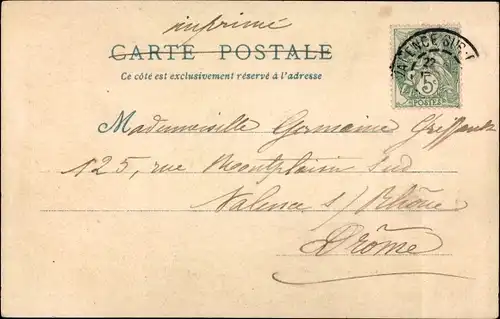 imprimé
CARTE POSTALE
Ce côté est exclusivement réservé à l'adresse
VALENCE SUR
22
5
POSTES
Mademoiselle Germaine
125, rue Montplaisir Sud
Valence s/ Rhône
Drôme